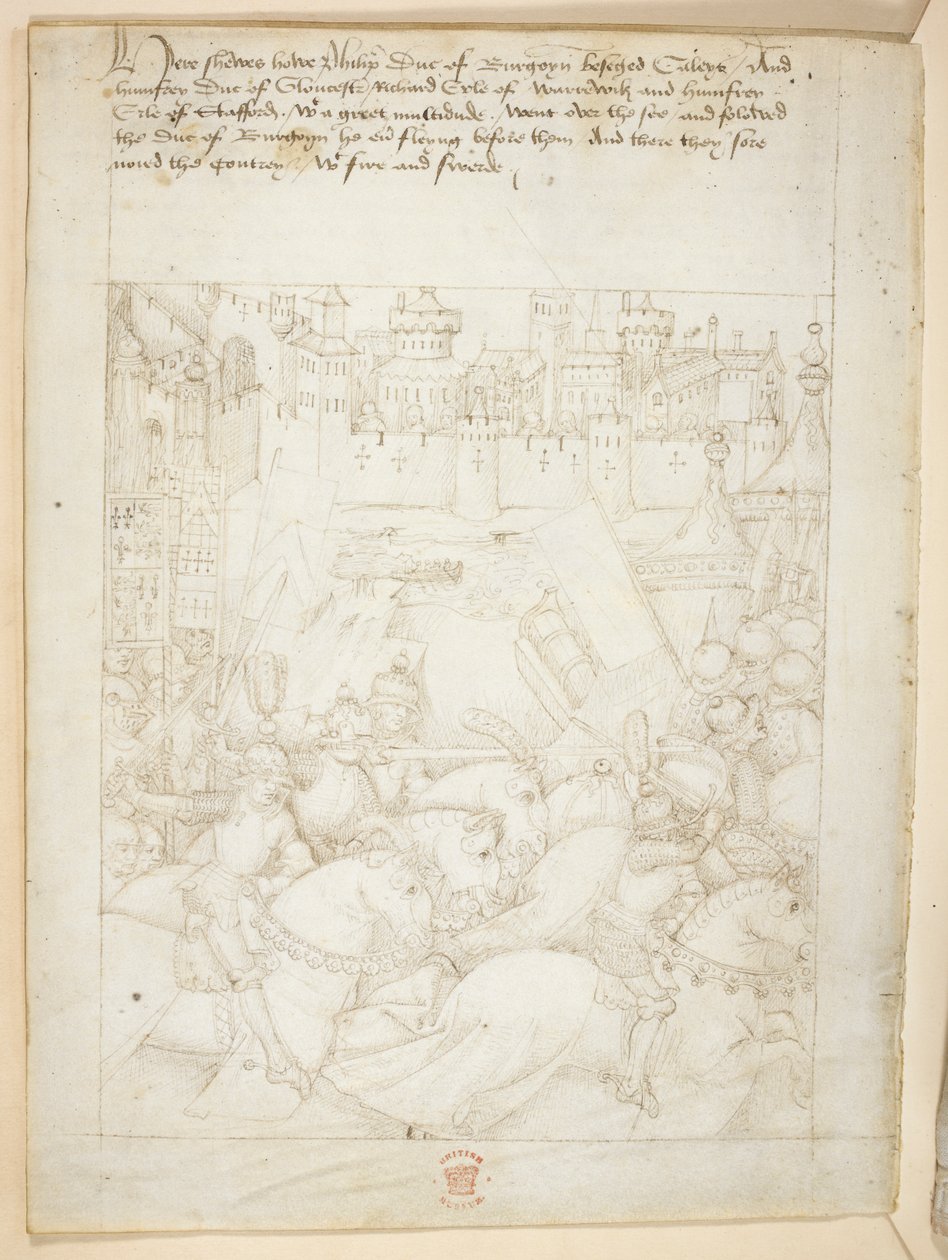 Here shewes howe Philip Duc of Burgoyn beseged Caleys / And
humfrey Duc of Gloucestr / Richard Erle of Warrewik and humfrey
Erle of Stafford . Wt a greet multitude . went over the see and folowed
the Duc of Burgoyn he fleyng before them And there they sore
noied the Contrey . / Wt fire and swerde .
BRITISH
MUSEUM